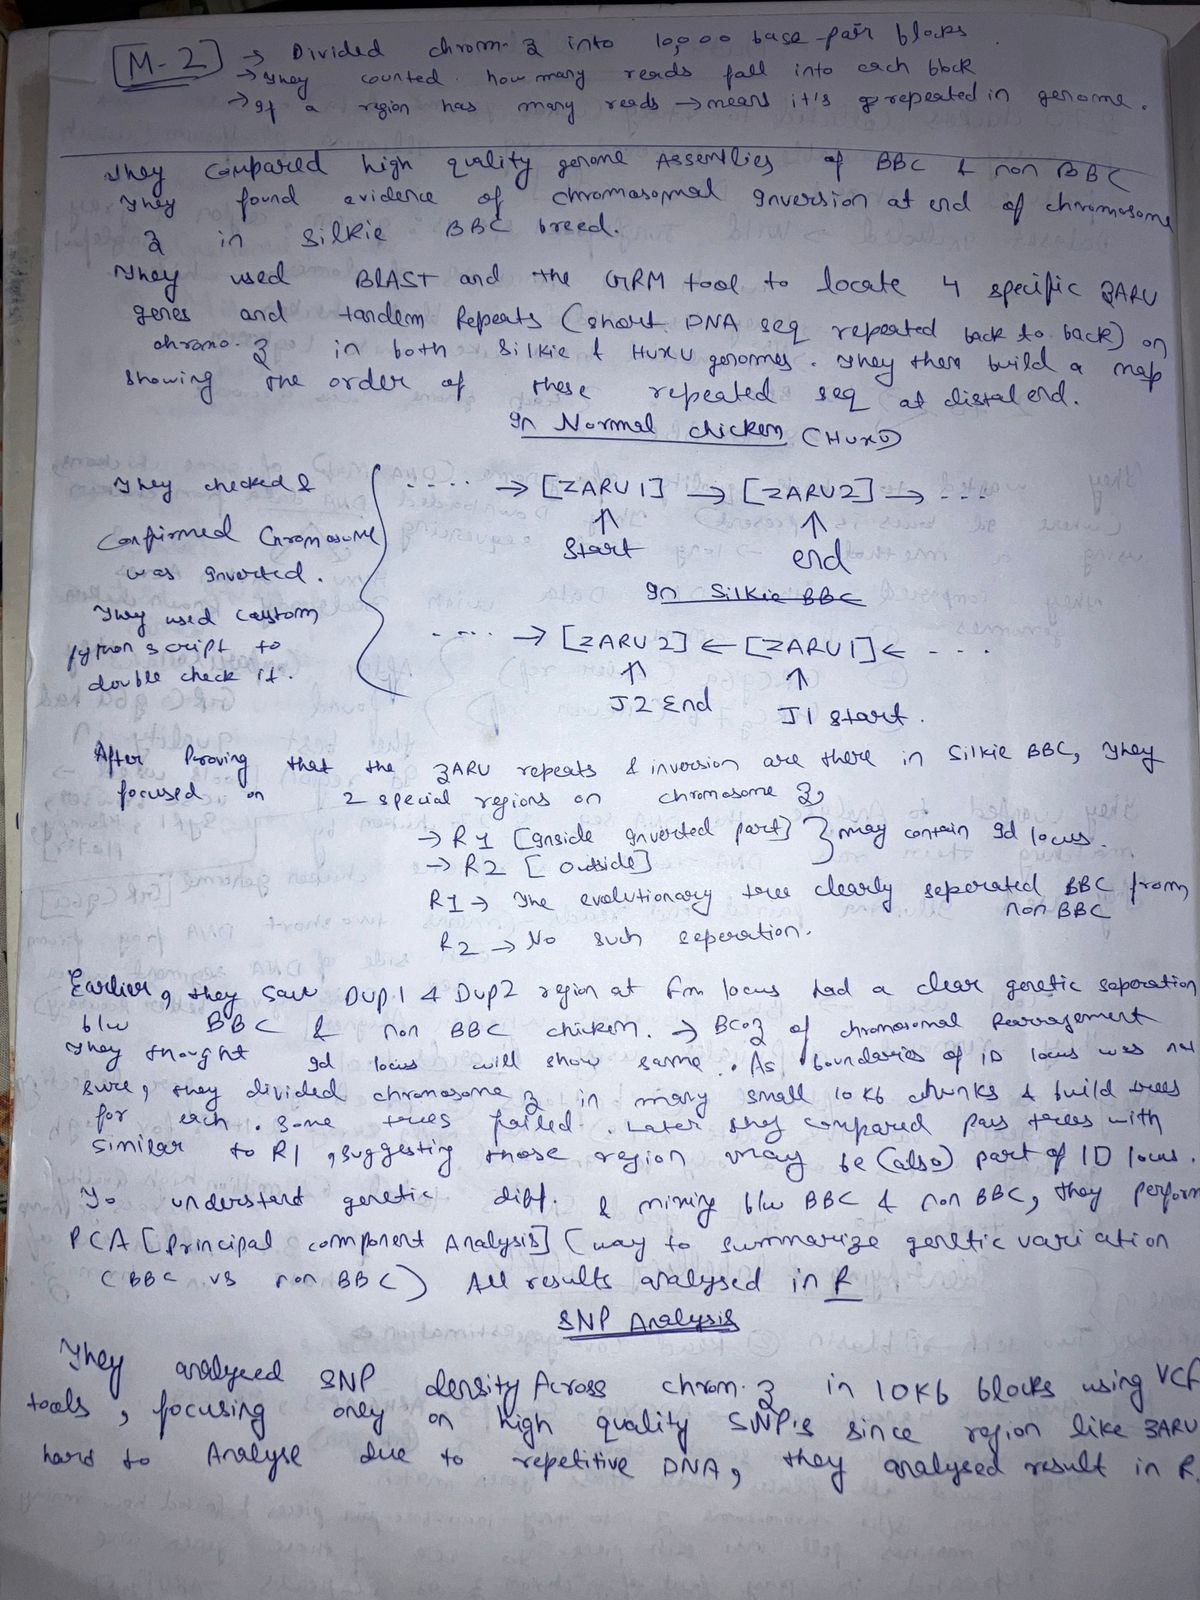 M-2 → Divided chrom. Z into 10,000 base-pair blocks.
→ They counted how many reads fall into each block
→ If a region has many reads → means it's repeated in genome.
They compared high quality genome Assemblies of BBC & non BBC
They found evidence of chromosomal Inversion at end of chromosome
Z in Silkie BBC breed.
They used BLAST and the GRM tool to locate 4 specific ZARU
genes and tandem Repeats (short DNA seq repeated back to back) on
chromo. Z in both Silkie & HUXU genomes. They then build a map
showing the order of these repeated seq at distal end.
In Normal chicken (HUXU)
They checked &
Confirmed Chromosome
was Inverted.
They used custom
python script to
double check it.
.... → [ZARU1] → [ZARU2] → ...
↑ ↑
Start end
In Silkie BBC
.... → [ZARU2] ← [ZARU1] ← ...
↑ ↑
J2 End J1 start.
After Proving that the ZARU repeats & inversion are there in Silkie BBC, They
focused on 2 special regions on chromosome Z,
→ R1 [Inside Inverted part] } may contain Id locus.
→ R2 [outside]
R1 → The evolutionary tree clearly seperated BBC from
non BBC
R2 → No such seperation.
Earlier, they saw Dup1 & Dup2 region at Fm locus had a clear genetic seperation
b/w BBC & non BBC chicken. → BCoz of chromosomal Rearragement
They thought Id locus will show same. As boundaries of ID locus was not
sure, they divided chromosome Z in many small 10 Kb chunks & build trees
for each. Some trees failed. Later they compared pass trees with
similar to R1, suggesting those region may be (also) part of ID locus.
To understand genetic diff. & mixing b/w BBC & non BBC, they perform
PCA [Principal component Analysis] (way to summarize genetic variation
(BBC vs non BBC) All results analysed in R
SNP Analysis
They analysed SNP density Across chrom. Z in 10Kb blocks using VCF
tools, focusing only on high quality SNP's since region like ZARU
hard to Analyse due to repetitive DNA, they analysed result in R.